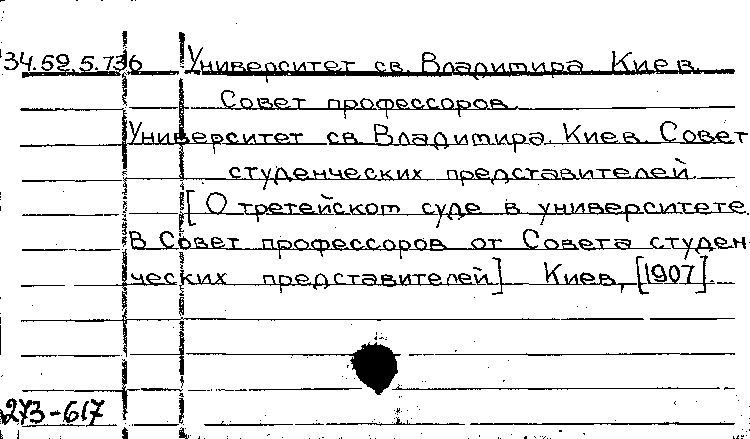 34.52.5.736 Университет св. Владимира. Киев.
Совет профессоров.
Университет св. Владимира. Киев. Совет
студенческих представителей.
[О третейском суде в университете.
В Совет профессоров от Совета студен-
ческих представителей]. Киев, [1907].
273-617